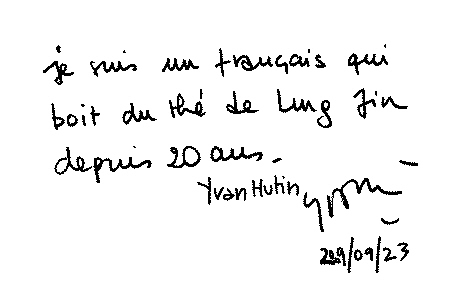 je suis un français qui
boit du thé de Ling Jin
depuis 20 ans.
Yvan Hutin
29/09/23